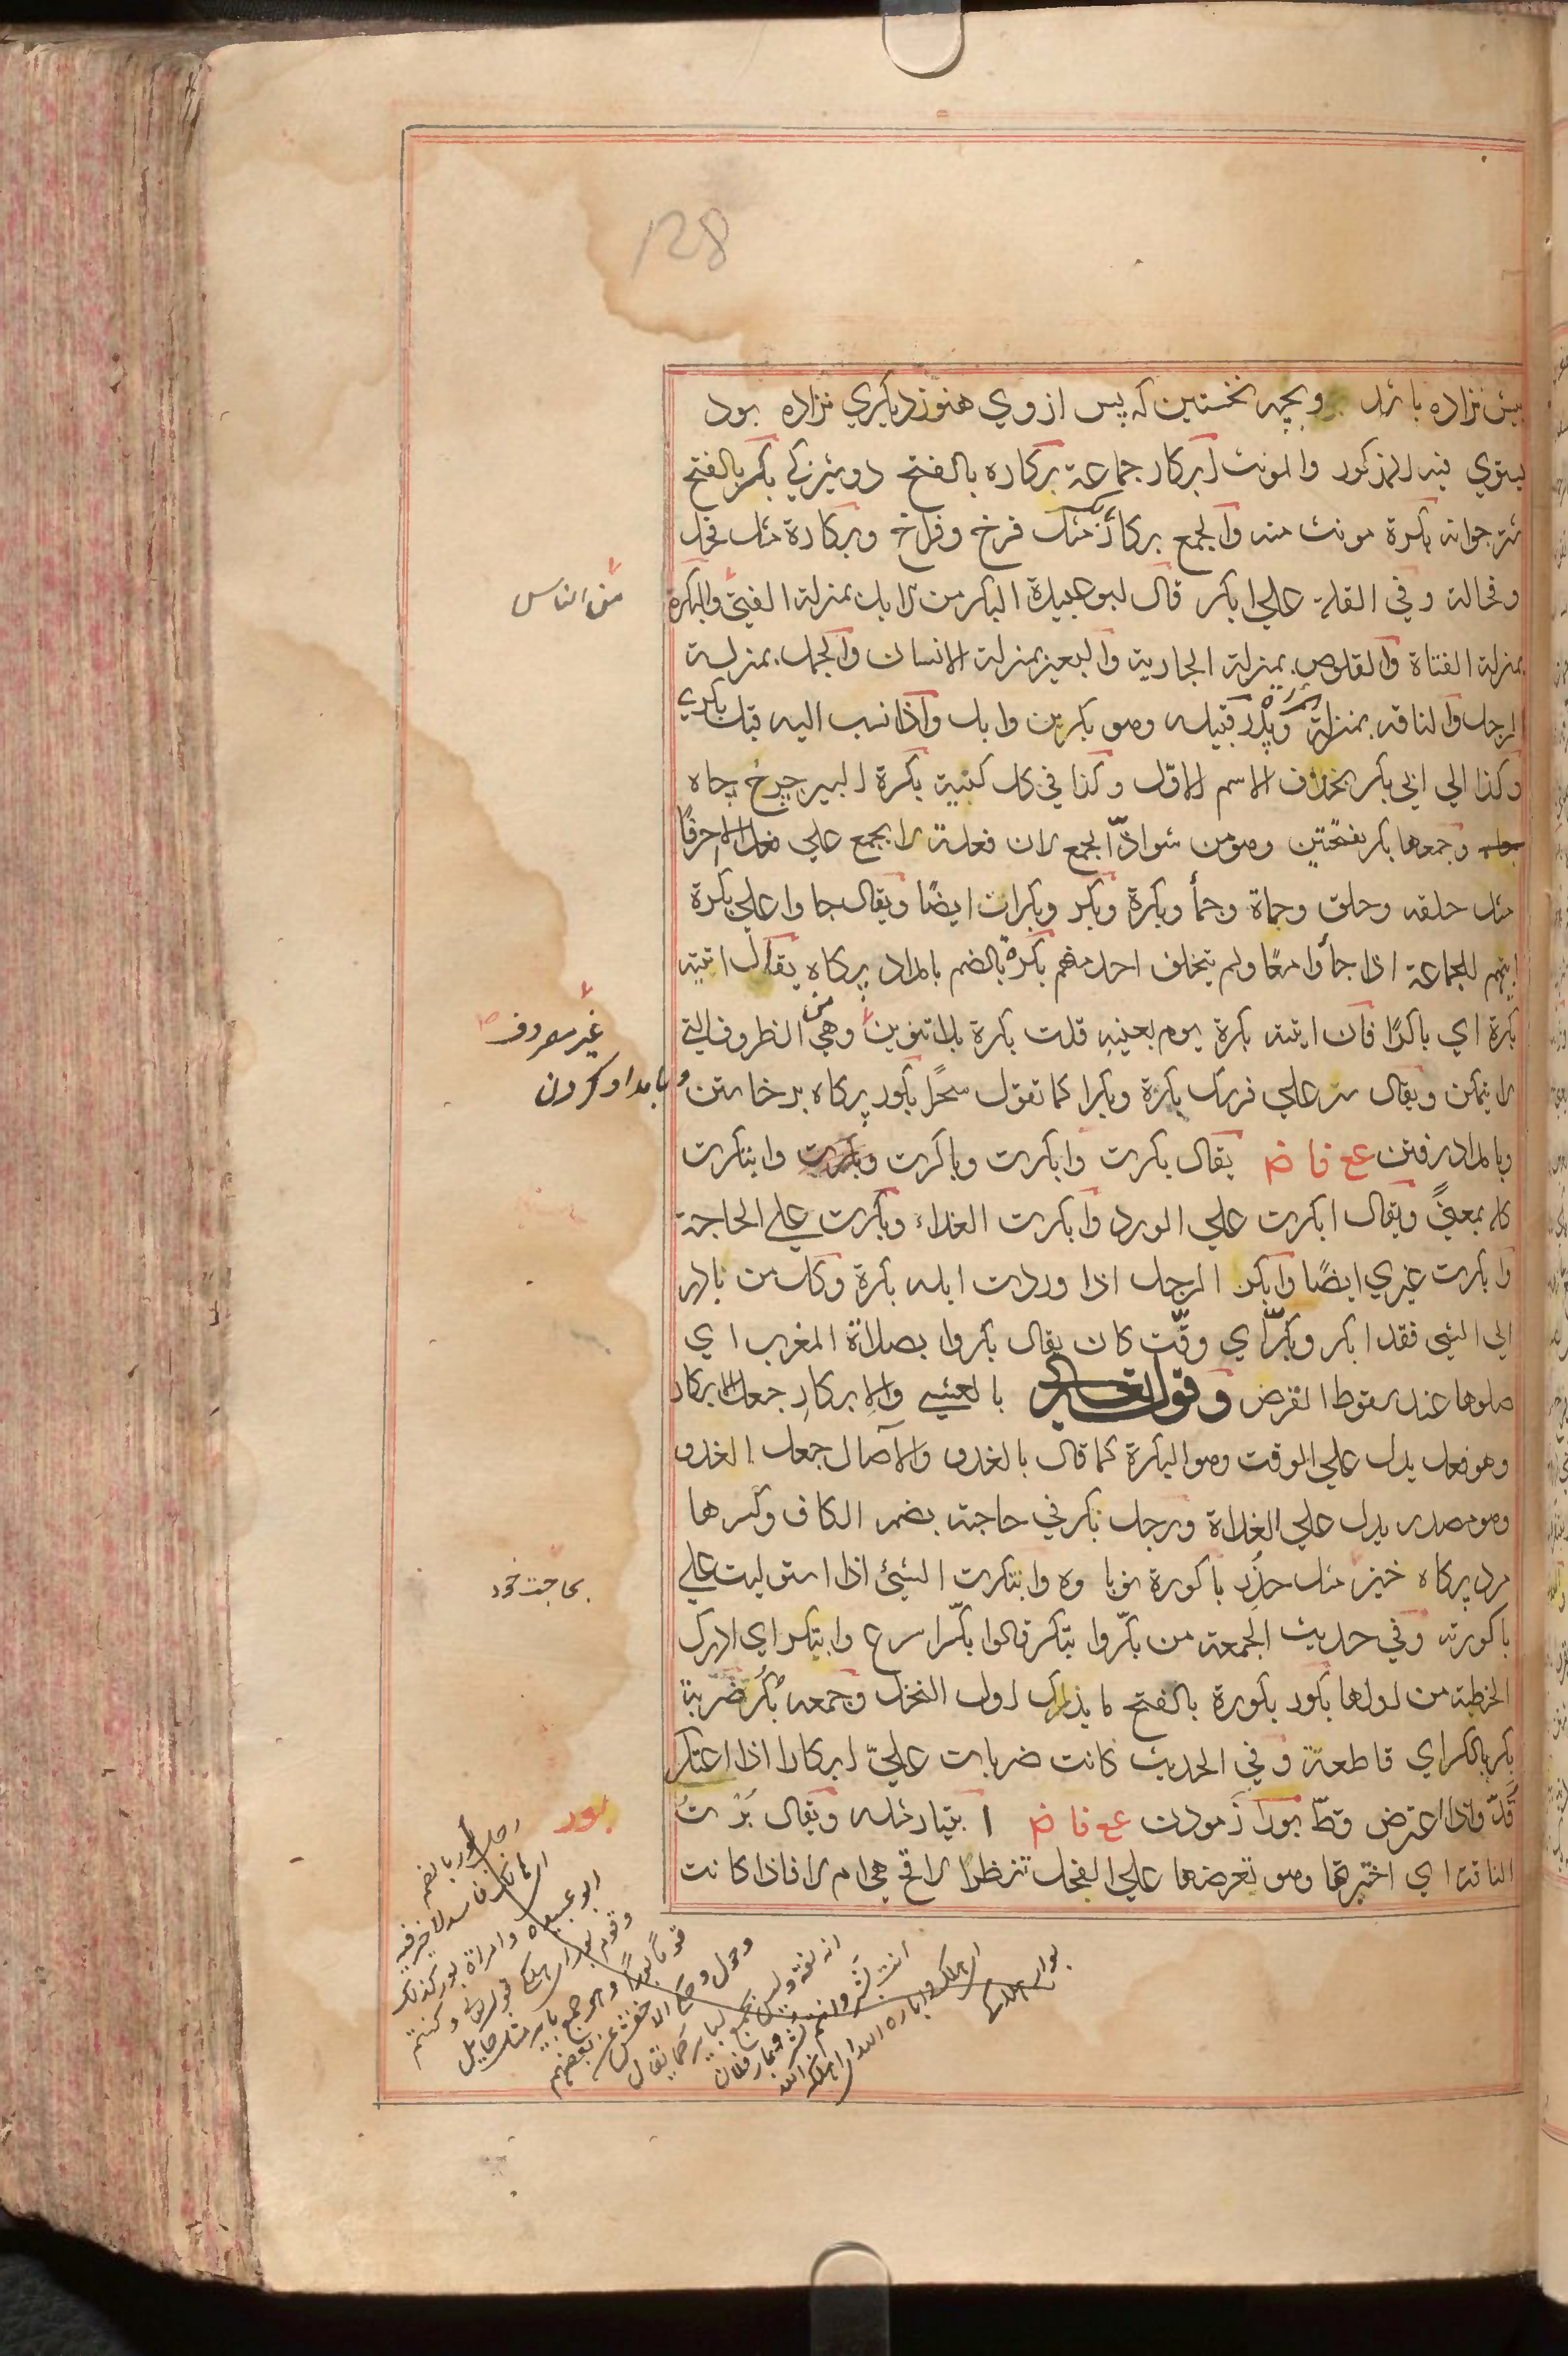 128
بیش نزاده باشد وبچه نخستین که پس از وی هنوز دیکری نزاده بود
یستوی فیه المذکور والمونث ابکار جماعة بکاره بالفتح دوشیزکی بکر بالفتح
شتر جوانه بکرة مونث منه والجمع بکار مثل فرخ وفراخ وبکارة مثل فحل
وفحالة وفی القلة علی ابکر قال ابو عبیدة البکر من الابل بمنزلة الفتی والبکرة
من الناس
بمنزلة الفتاة والقلوص بمنزلة الجاریة والبعیر بمنزلة الانسان والجمل بمنزلة
الرجل والناقه بمنزلة المرءة وبکر قبیله وهو بکر بن وایل واذا نسب الیه قیل بکری
وکذا الی ابی بکر بحذف الاسم الاول وکذا فی کل کنیة بکرة البیر چرخ چاه
وجمعها بکر بفتحتین وهو من شواذ الجمع لان فعلة لا یجمع علی فعل الا احرفا
مثل حلقه وحلق وحماة وحمأ وبکرة وبکر وبکرات ایضا ویقال جاوا علی بکرة
ابیهم للجماعة اذا جأوا معا ولم یتخلف احد منهم بکرة بالضم بامداد پرکاه یقال اتیته
بکرة ای باکرا فان اتیته بکرة یوم بعینه قلت بکرة بلا تنوین وهی من الظروف التی
غیر معروف
لا یتمکن ویقال سر علی فرسک بکرة وبکرا کما تقول سحرا بکور پرکاه برخاستن
و بامداد کردن
وبامداد رفتن ع ع فا ض یقال بکرت وابکرت وباکرت وبکرت وابتکرت
کله بمعنی ویقال ابکرت علی الورد وابکرت الغداء وبکرت علی الحاجة
وابکرت غیری ایضا وابکر الرجل اذا وردت ابله بکرة وکل من بادر
الی الشی فقد ابکر وبکر ای وقت کان یقال بکروا بصلاة المغرب ای
صلوها عند سقوط القرص وقوله تعالی بالعشی والابکار جعل الابکار
وهو فعل یدل علی الوقت وهو البکرة کما قال بالغدو والآصال جعل الغدو
وهو مصدر یدل علی الغداة ورجل بکر فی حاجته بضم الکاف وکسرها
مرد پرکاه خیز مثل حذر باکورة نوباوه وابتکرت الشیئ اذا استولیت علی
بحاجت خود
باکورته وفی حدیث الجمعة من بکر وابتکر قالوا بکر اسرع وابتکر ای ادرک
الخطبة من اولها بکور بکورة بالفتح ما یدرک اول النخل وجمعه بکر ضربة
بکر بالکسر ای قاطعة وفی الحدیث کانت ضربات علی ابکارا اذا اعتکر
قد واذا اعترض قط بور آزمودن ع ع فا ض ابتیار مثله ویقال برت
الناقة ای اختبرتها وهو تعرضها علی الفحل تنظر الاقح هی ام لا فاذا کانت
بور
رجل بور بالضم
ای هالک فاسد لا خیر فیه
ابو عبیده وامراة بور کذلک
وقوم بور ای هلکی قوله تعالی وکنتم
قوما بورا وهو جمع بایر مثل حایل
وحول وحکی الاخفش عن بعضهم
انه لغة ولیس بجمع لبایر کما یقال
انت بشر وانتم بشر وبار فلان
ای هلک واباره الله ای اهلکه الله
بوار هلاک